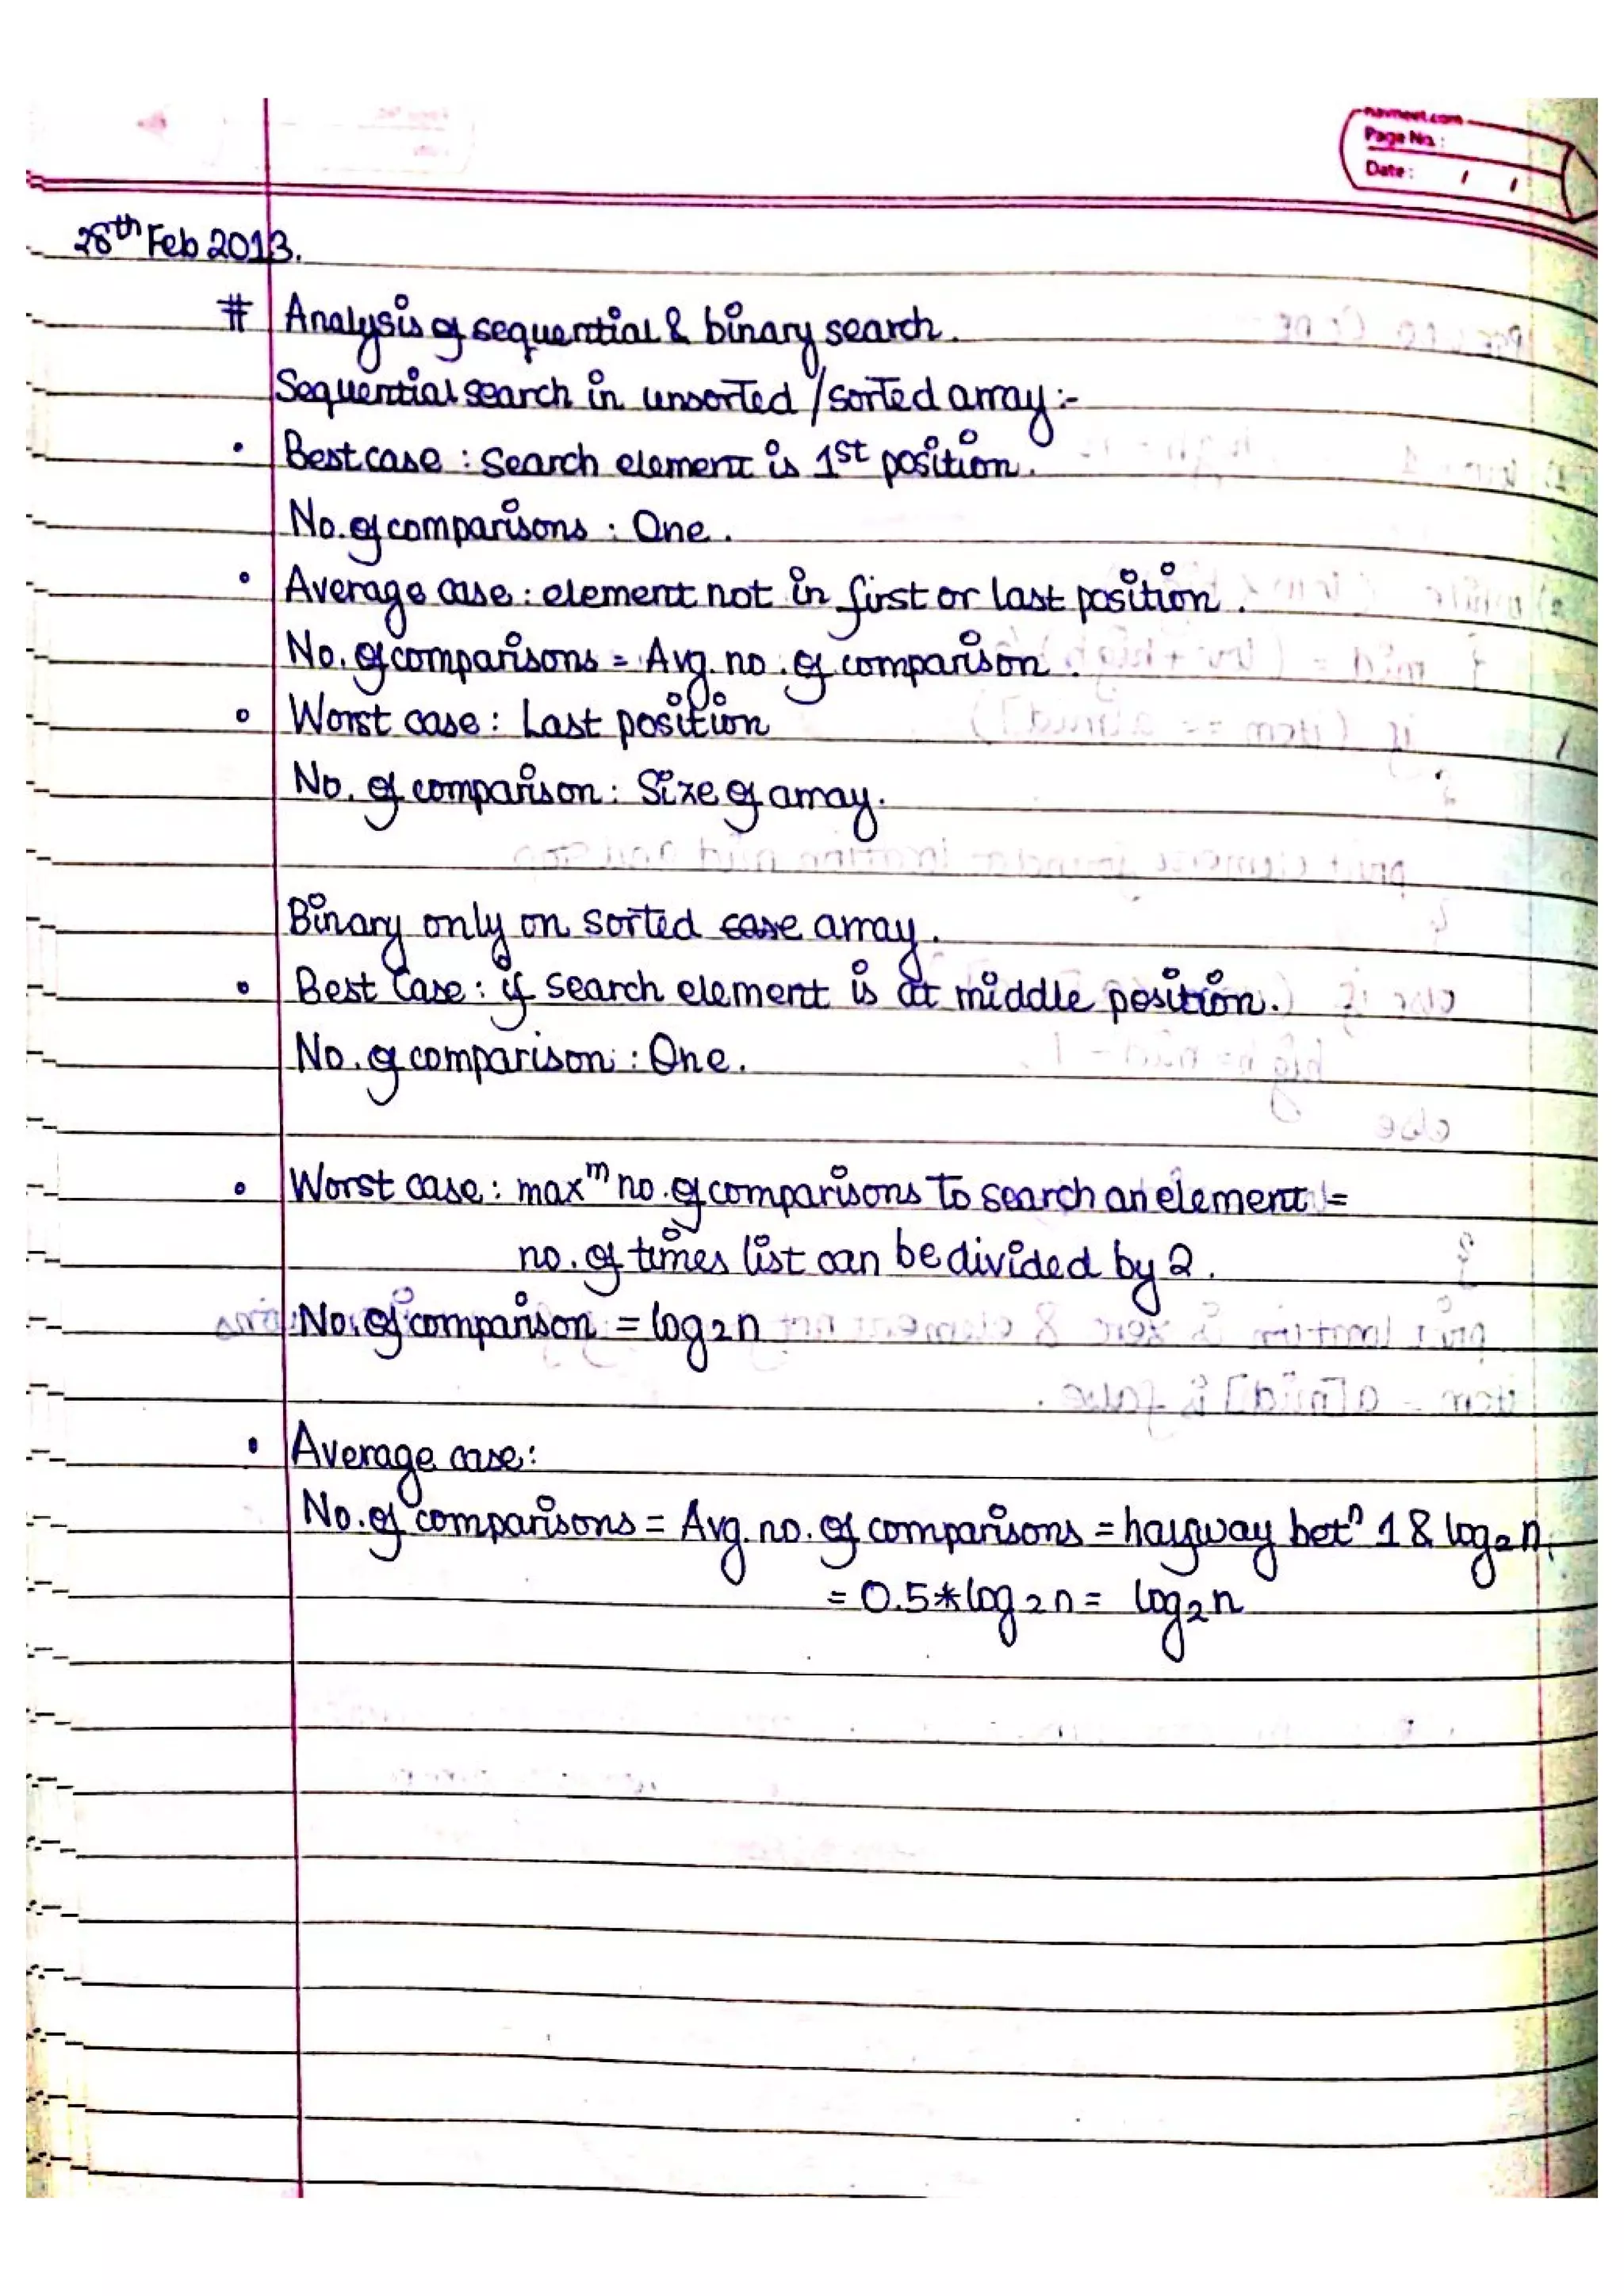 navneet.com
Page No. :
Date : / /
28th Feb 2013.
# Analysis of sequential & binary search.
Sequential search in unsorted / sorted array :-
• Best case : Search element is 1st position.
No. of comparisons : One.
• Average case : element not in first or last position.
No. of comparisons = Avg. no. of comparison.
• Worst case : Last position
No. of comparison : Size of array.
Binary only on sorted case array.
• Best Case : if search element is at middle position.
No. of comparison : One.
• Worst case : maxm no. of comparisons to search an element =
no. of times list can be divided by 2.
No. of comparison = log2n
• Average case :
No. of comparisons = Avg. no. of comparisons = halfway betn 1 & log2n.
= 0.5*log2n = log2n